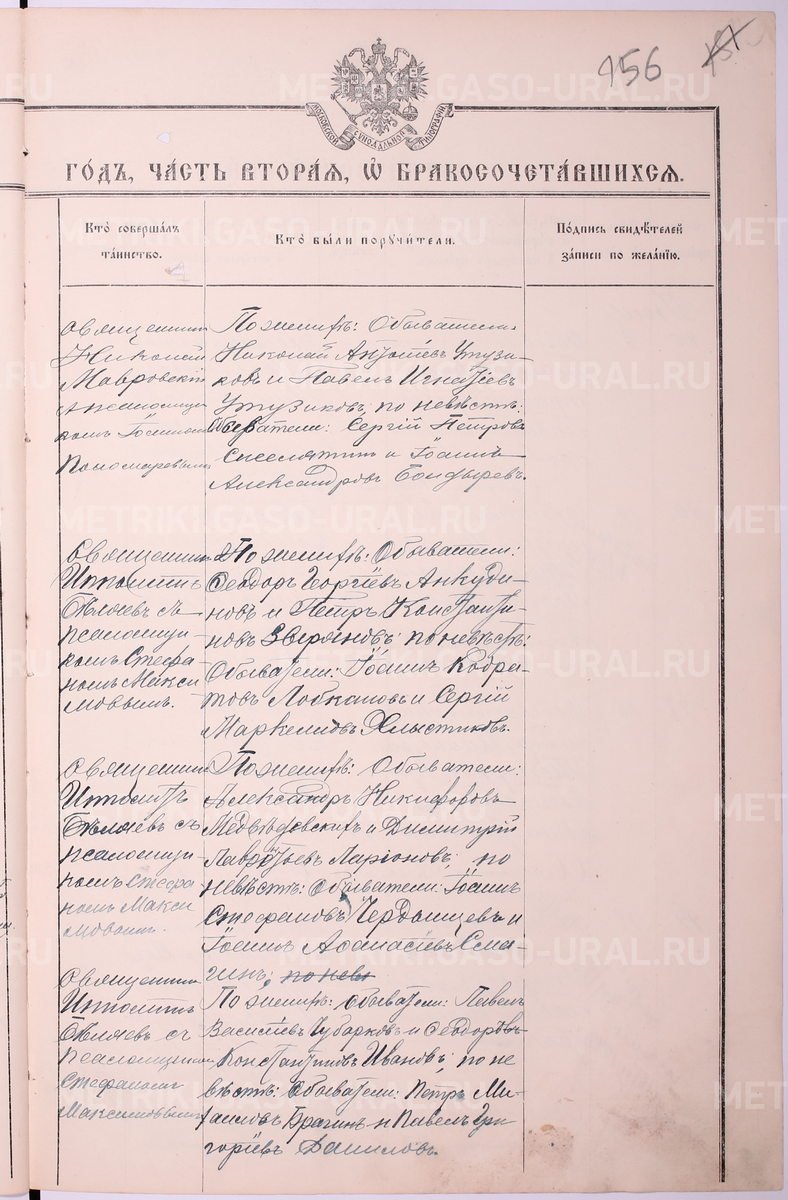 156
МОСКОВСКОЙ СѴНОДАЛЬНОЙ ТИПОГРАФІИ
ГОДЪ, ЧАСТЬ ВТОРАЯ, Ѡ БРАКОСОЧЕТАВШИХСЯ.
Кто совершалъ таинство.
Кто были поручители.
Подпись свидѣтелей записи по желанію.
Священникъ
Николай
Мавровскій
псаломщи-
комъ Іоанном
Пономаревымъ
По женихѣ: Обыватели:
Николай Утузи-
ковъ и Павелъ Игнатіевъ
Утузиковъ; по невѣстѣ:
Обыватели: Сергій Петровъ
и Іоаннъ
Александровъ Бондыревъ.
Священникъ
Ипполитъ
Бѣляевъ съ
псаломщи-
комъ Стефа-
номъ Макси
мовымъ.
По женихѣ: Обыватели:
Ѳеодоръ Георгіевъ Анкуди-
новъ и Петръ Константи-
новъ Звѣряновъ; по невѣстѣ:
Обыватели: Іоаннъ Кодра-
товъ Лобкановъ и Сергій
Маркеловъ Хлыстиковъ.
Священникъ
Ипполитъ
Бѣляевъ съ
псаломщи-
комъ Стефа
номъ Макси
мовымъ.
По женихѣ: Обыватели:
Александръ Никифоровъ
Медвѣдовскихъ и Димитрій
Лаврентьевъ Ларіоновъ; по
невѣстѣ: Обыватели: Іоаннъ
Стефановъ Чердынцевъ и
Іоаннъ Аѳанасіевъ Сма-
гинъ; по невѣ
Священникъ
Ипполитъ
Бѣляевъ съ
псаломщикомъ
Стефаномъ
Максимовымъ
По женихѣ: Обыватели: Павелъ
Василіевъ Чубарковъ и Ѳеодоръ
Константиновъ Ивановъ; по не
вѣстѣ: Обыватели: Петръ Ми-
хаиловъ Брагинъ и Павелъ Гри
горіевъ Даниловъ.
METRIKI.GASO-URAL.RU